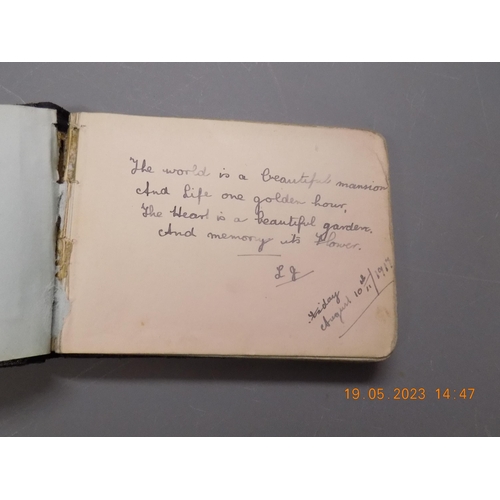 The world is a beautiful mansion
And Life one golden hour,
The Heart is a beautiful garden,
And memory its Flower.
L J
Friday
August 10th / 1917
19.05.2023 14:47